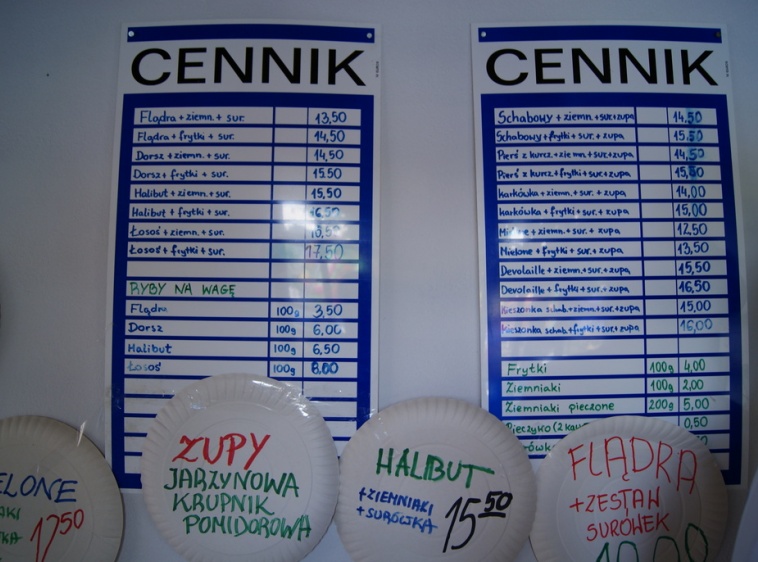 CENNIK
Flądra + ziemn. + sur. 13,50
Flądra + frytki + sur. 14,50
Dorsz + ziemn. + sur. 14,50
Dorsz + frytki + sur. 15.50
Halibut + ziemn. + sur. 15,50
Halibut + frytki + sur. 16,50
Łosoś + ziemn. + sur.
Łosoś + frytki + sur. 17,50
RYBY NA WAGĘ
Flądra 100g 3,50
Dorsz 100g 6,00
Halibut 100g 6,50
Łosoś 100g 8.00
CENNIK
Schabowy + ziemn. + sur.+zupa 14,50
Schabowy + frytki + sur. + zupa 15.50
Pierś z kurcz. + ziemn. + sur.+zupa 14,50
Pierś z kurcz + frytki + sur. + zupa 15,50
karkówka + ziemn. + sur. + zupa 14,00
karkówka + frytki + sur. + zupa 15,00
Mielone + ziemn. + sur. + zupa 12,50
Mielone + frytki + sur. + zupa 13,50
Devolaille + ziemn. + sur. + zupa 15,50
Devolaille + frytki + sur. + zupa 16,50
Kieszonka schab. + ziemn. + sur. + zupa 15,00
Kieszonka schab. + frytki + sur. + zupa 16,00
Frytki 100g 4,00
Ziemniaki 100g 2,00
Ziemniaki pieczone 200g 5,00
Pieczywo (2 0,50
ELONE
AKI
17 50
ZUPY
JARZYNOWA
KRUPNIK
POMIDOROWA
HALIBUT
+ZIEMNIAKI
+SURÓWKA
15 50
FLĄDRA
+ZESTAW
SURÓWEK